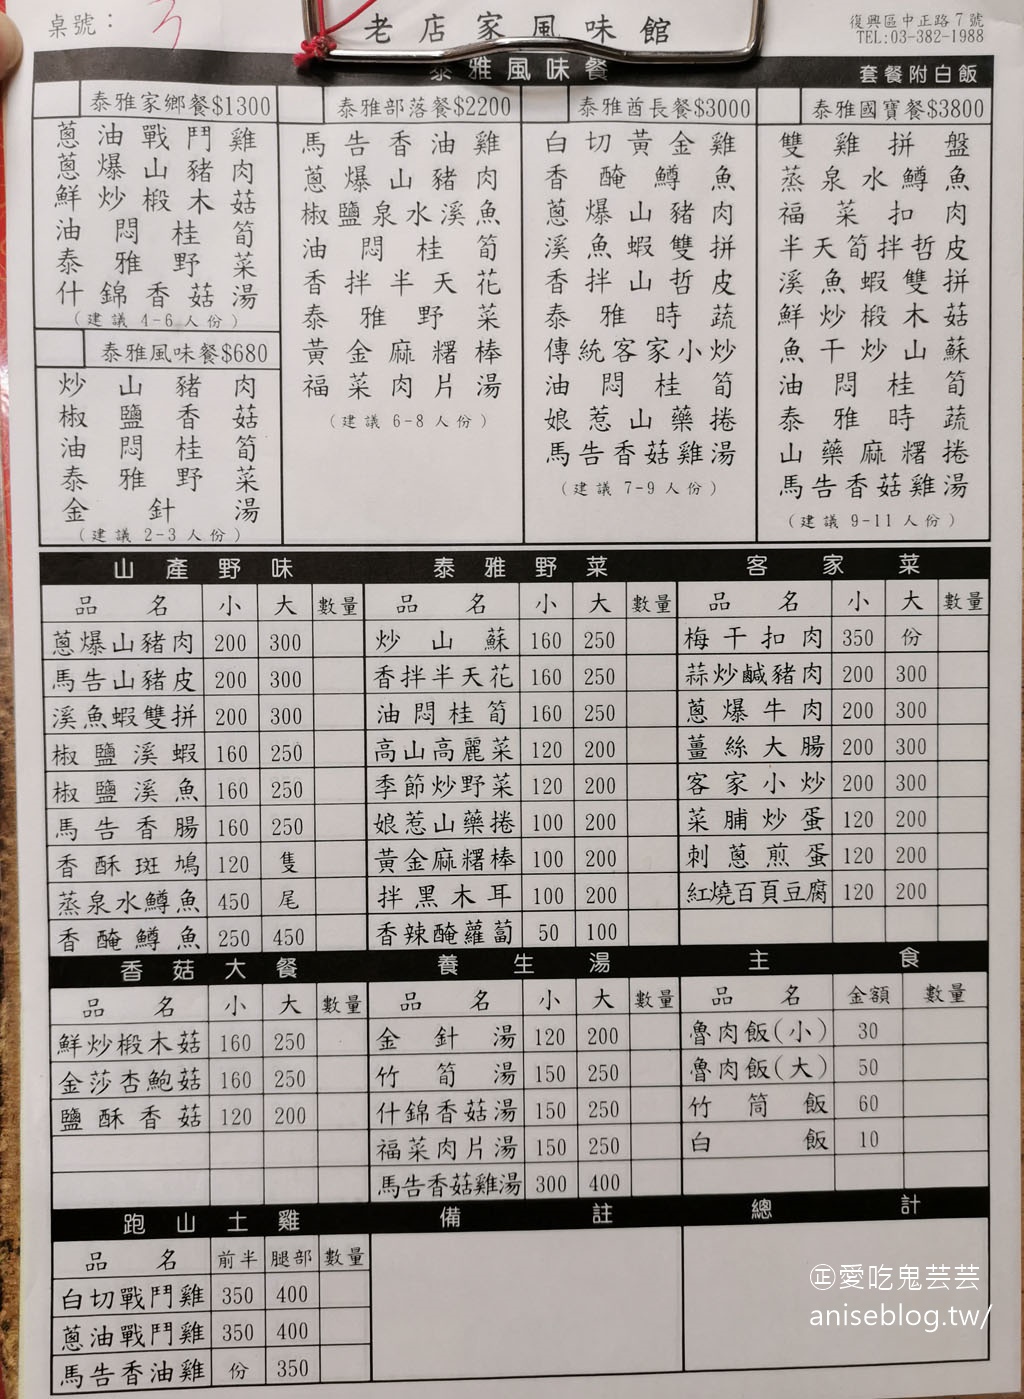 桌號：3
老店家風味館
復興區中正路7號
TEL:03-382-1988
泰雅風味餐 套餐附白飯
泰雅家鄉餐$1300
蔥油戰鬥雞
蔥爆山豬肉
鮮炒椴木菇
油悶桂筍
泰雅野菜
什錦香菇湯
(建議4-6人份)
泰雅風味餐$680
炒山豬肉
椒鹽香菇
油悶桂筍
泰雅野菜
金針湯
(建議2-3人份)
泰雅部落餐$2200
馬告香油雞
蔥爆山豬肉
椒鹽泉水溪魚
油悶桂筍
香拌半天花
泰雅野菜
黃金麻糬棒
福菜肉片湯
(建議6-8人份)
泰雅酋長餐$3000
白切黃金雞
香醃鱒魚
蔥爆山豬肉
溪魚蝦雙拼
香拌山哲皮
泰雅時蔬
傳統客家小炒
油悶桂筍
娘惹山藥捲
馬告香菇雞湯
(建議7-9人份)
泰雅國寶餐$3800
雙雞拼盤
蒸泉水鱒魚
福菜扣肉
半天筍拌哲皮
溪魚蝦雙拼
鮮炒椴木菇
魚干炒山蘇
油悶桂筍
泰雅時蔬
山藥麻糬捲
馬告香菇雞湯
(建議9-11人份)
山產野味
品名 小 大 數量
蔥爆山豬肉 200 300
馬告山豬皮 200 300
溪魚蝦雙拼 200 300
椒鹽溪蝦 160 250
椒鹽溪魚 160 250
馬告香腸 160 250
香酥斑鳩 120 隻
蒸泉水鱒魚 450 尾
香醃鱒魚 250 450
泰雅野菜
品名 小 大 數量
炒山蘇 160 250
香拌半天花 160 250
油悶桂筍 160 250
高山高麗菜 120 200
季節炒野菜 120 200
娘惹山藥捲 100 200
黃金麻糬棒 100 200
拌黑木耳 100 200
香辣醃蘿蔔 50 100
客家菜
品名 小 大 數量
梅干扣肉 350 份
蒜炒鹹豬肉 200 300
蔥爆牛肉 200 300
薑絲大腸 200 300
客家小炒 200 300
菜脯炒蛋 120 200
刺蔥煎蛋 120 200
紅燒百頁豆腐 120 200
香菇大餐
品名 小 大 數量
鮮炒椴木菇 160 250
金莎杏鮑菇 160 250
鹽酥香菇 120 200
養生湯
品名 小 大 數量
金針湯 120 200
竹筍湯 150 250
什錦香菇湯 150 250
福菜肉片湯 150 250
馬告香菇雞湯 300 400
主食
品名 金額 數量
魯肉飯(小) 30
魯肉飯(大) 50
竹筒飯 60
白飯 10
跑山土雞
品名 前半 腿部 數量
白切戰鬥雞 350 400
蔥油戰鬥雞 350 400
馬告香油雞 份 350
備註
總計
㊣愛吃鬼芸芸
aniseblog.tw/